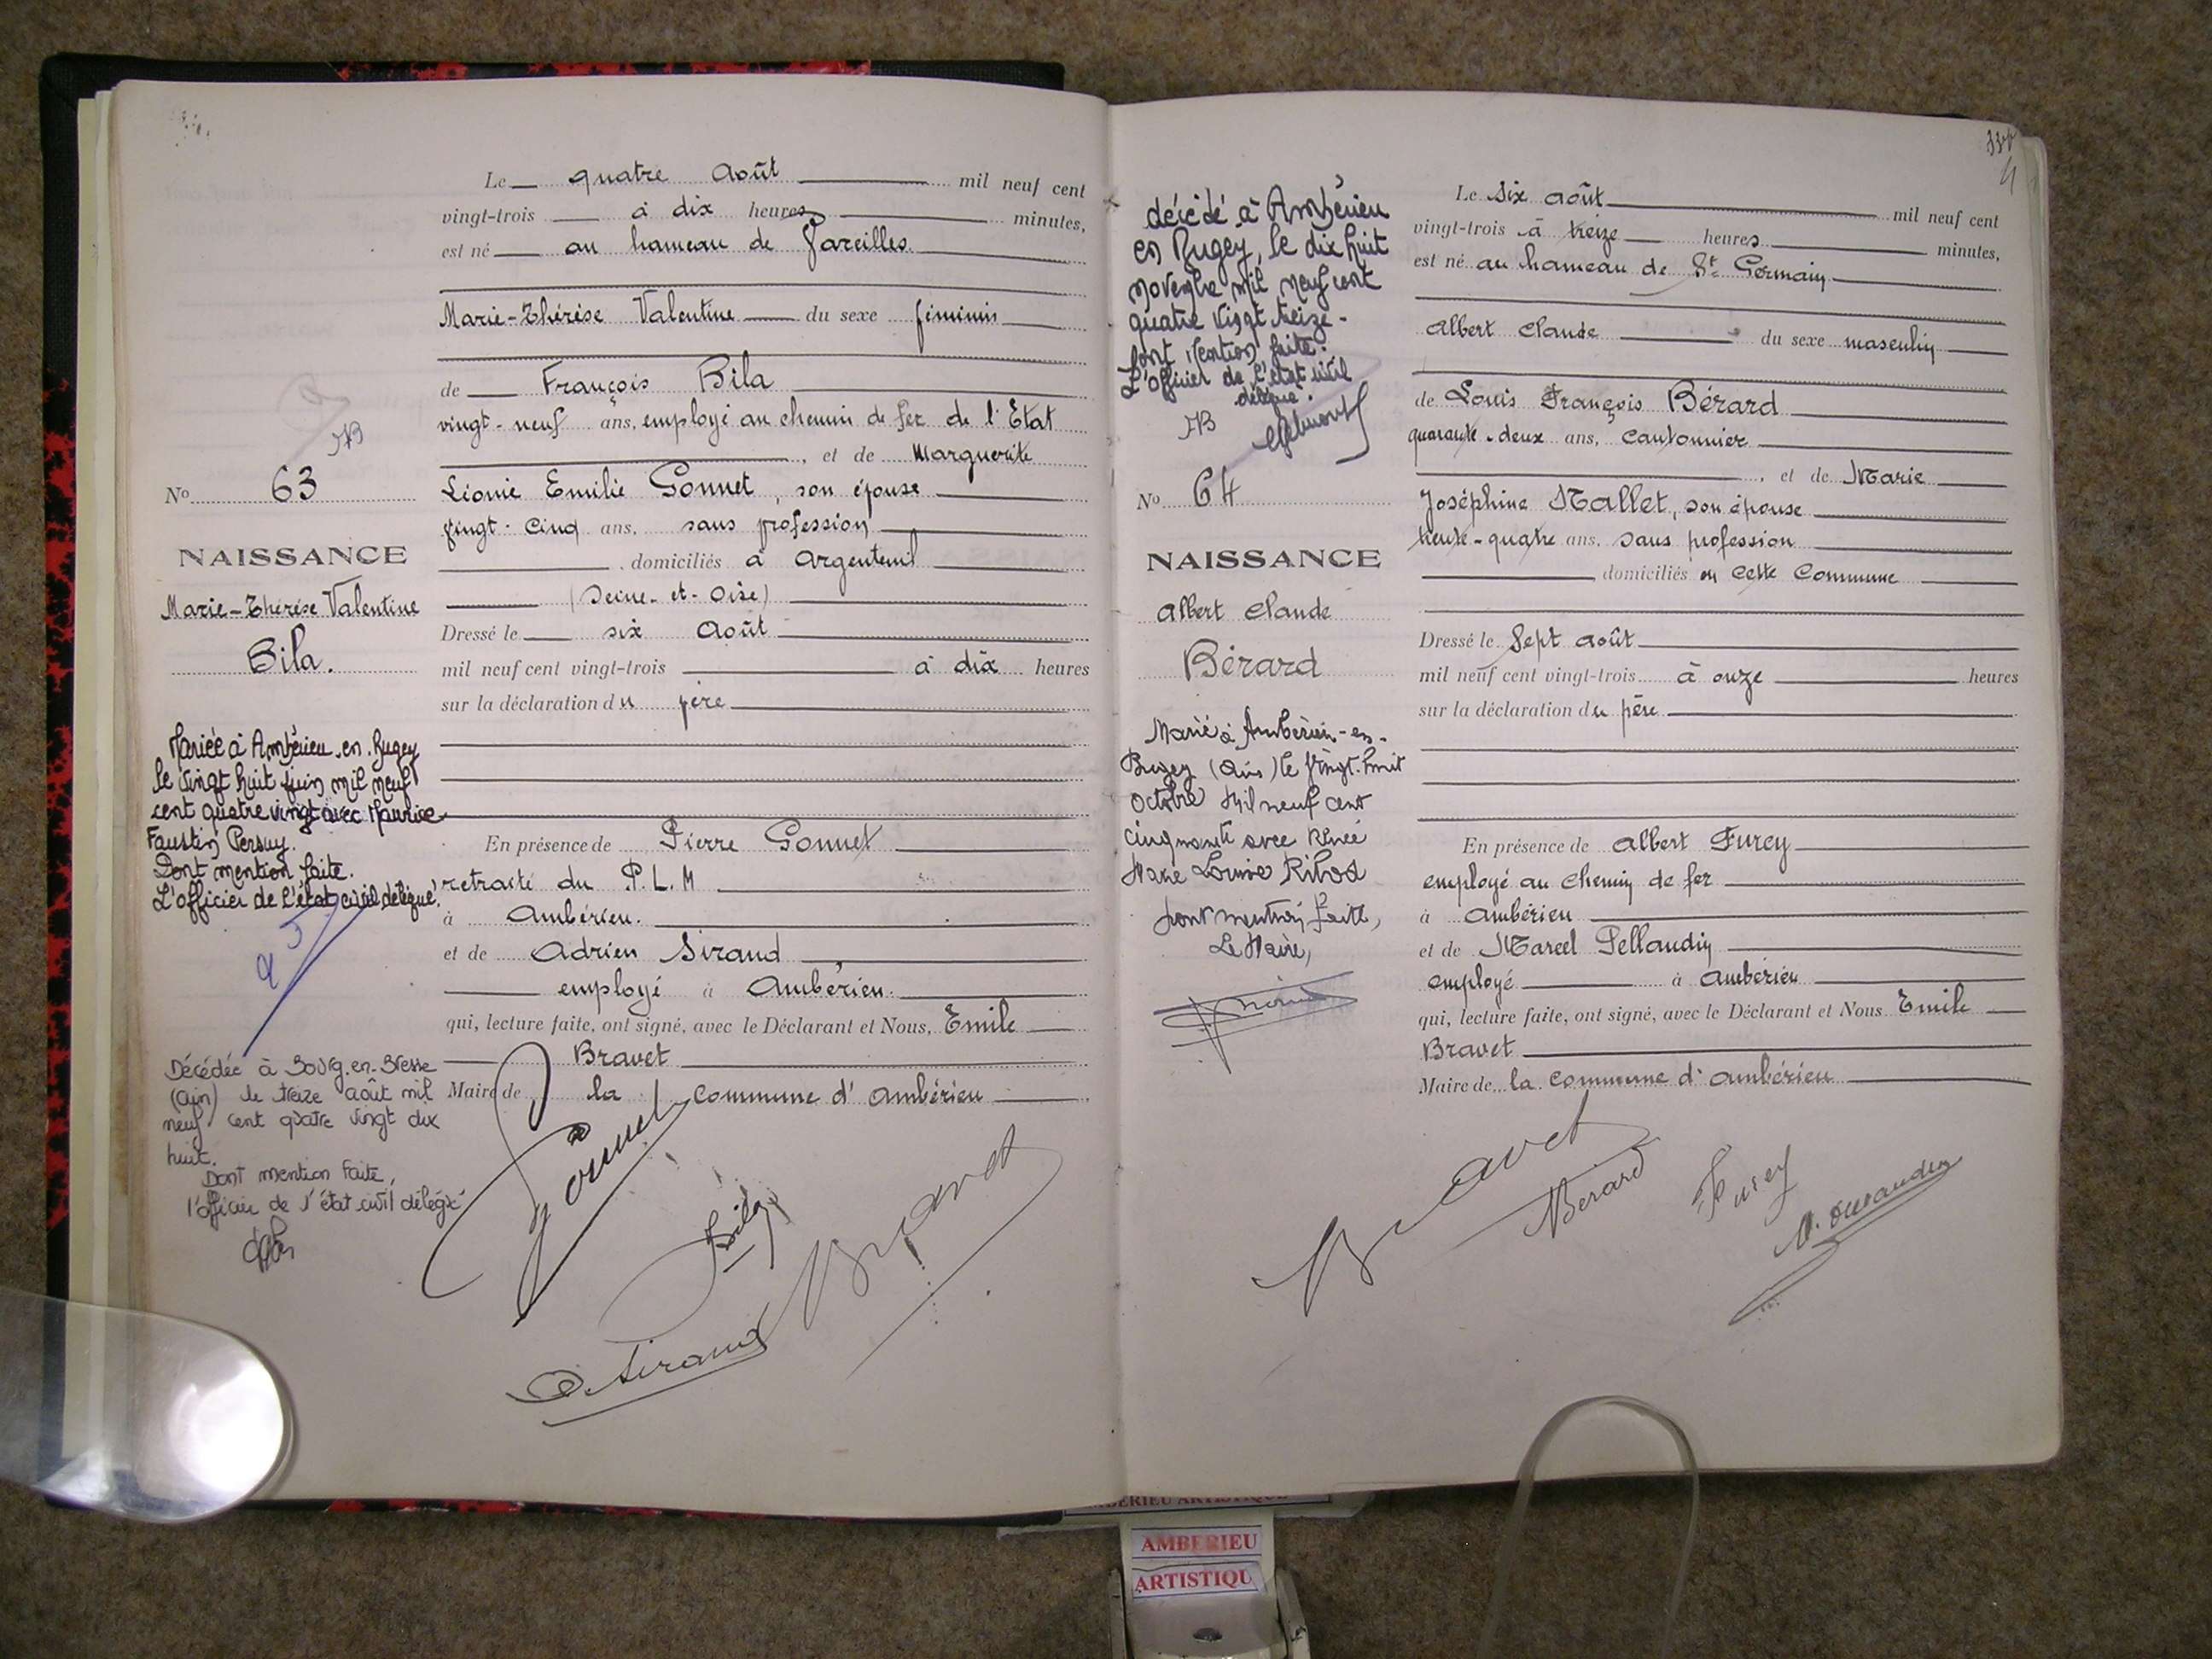 Le quatre Août mil neuf cent
vingt-trois à dix heures minutes,
est né au hameau de Vareilles
Marie-Thérèse Valentine du sexe féminin
de François Bila
vingt-neuf ans, employé au chemin de fer de l'Etat
, et de Marguerite
Léonie Emilie Gonnet, son épouse
vingt-cinq ans, sans profession
, domiciliés à Argenteuil
(Seine-et-Oise)
Dressé le six Août
mil neuf cent vingt-trois à dix heures
sur la déclaration du père
En présence de Pierre Gonnet
retraité du P.L.M
à Ambérieu.
et de Adrien Sirand
employé à Ambérieu.
qui, lecture faite, ont signé, avec le Déclarant et Nous, Emile
Bravet
Maire de la commune d'Ambérieu
Gonnet
Bila
A Sirand
Bravet
No 63
NAISSANCE
Marie-Thérèse Valentine
Bila.
Mariée à Ambérieu-en-Bugey
le vingt huit juin mil neuf
cent quatre vingt avec Maurice
Faustin Persuy.
Dont mention faite.
L'officier de l'état civil délégué.
Décédée à Bourg-en-Bresse
(Ain) le treize août mil
neuf cent quatre vingt dix
huit.
Dont mention faite,
l'officier de l'état civil délégué
décédé à Ambérieu
en Bugey, le dix huit
novembre mil neuf cent
quatre vingt treize.
Dont Mention faite.
L'officier de l'état civil
délégué.
No 64
NAISSANCE
Albert Claude
Bérard
Marié à Ambérieu-en-
Bugey (Ain) le vingt-huit
octobre mil neuf cent
cinquante avec Renée
Marie Louise Ribod
Dont mention faite,
Le Maire,
Le six août mil neuf cent
vingt-trois à treize heures minutes,
est né au hameau de St Germain
Albert Claude du sexe masculin
de Louis François Bérard
quarante-deux ans, cantonnier
, et de Marie
Joséphine Mallet, son épouse
trente-quatre ans, sans profession
domiciliés en cette commune
Dressé le sept août
mil neuf cent vingt-trois à onze heures
sur la déclaration du père
En présence de Albert Furey
employé au chemin de fer
à Ambérieu
et de Marcel Pellaudin
employé à Ambérieu
qui, lecture faite, ont signé, avec le Déclarant et Nous Emile
Bravet
Maire de la commune d'Ambérieu
Bravet
Bérard
Furey
AMBERIEU ARTISTIQUE
AMBERIEU
ARTISTIQU